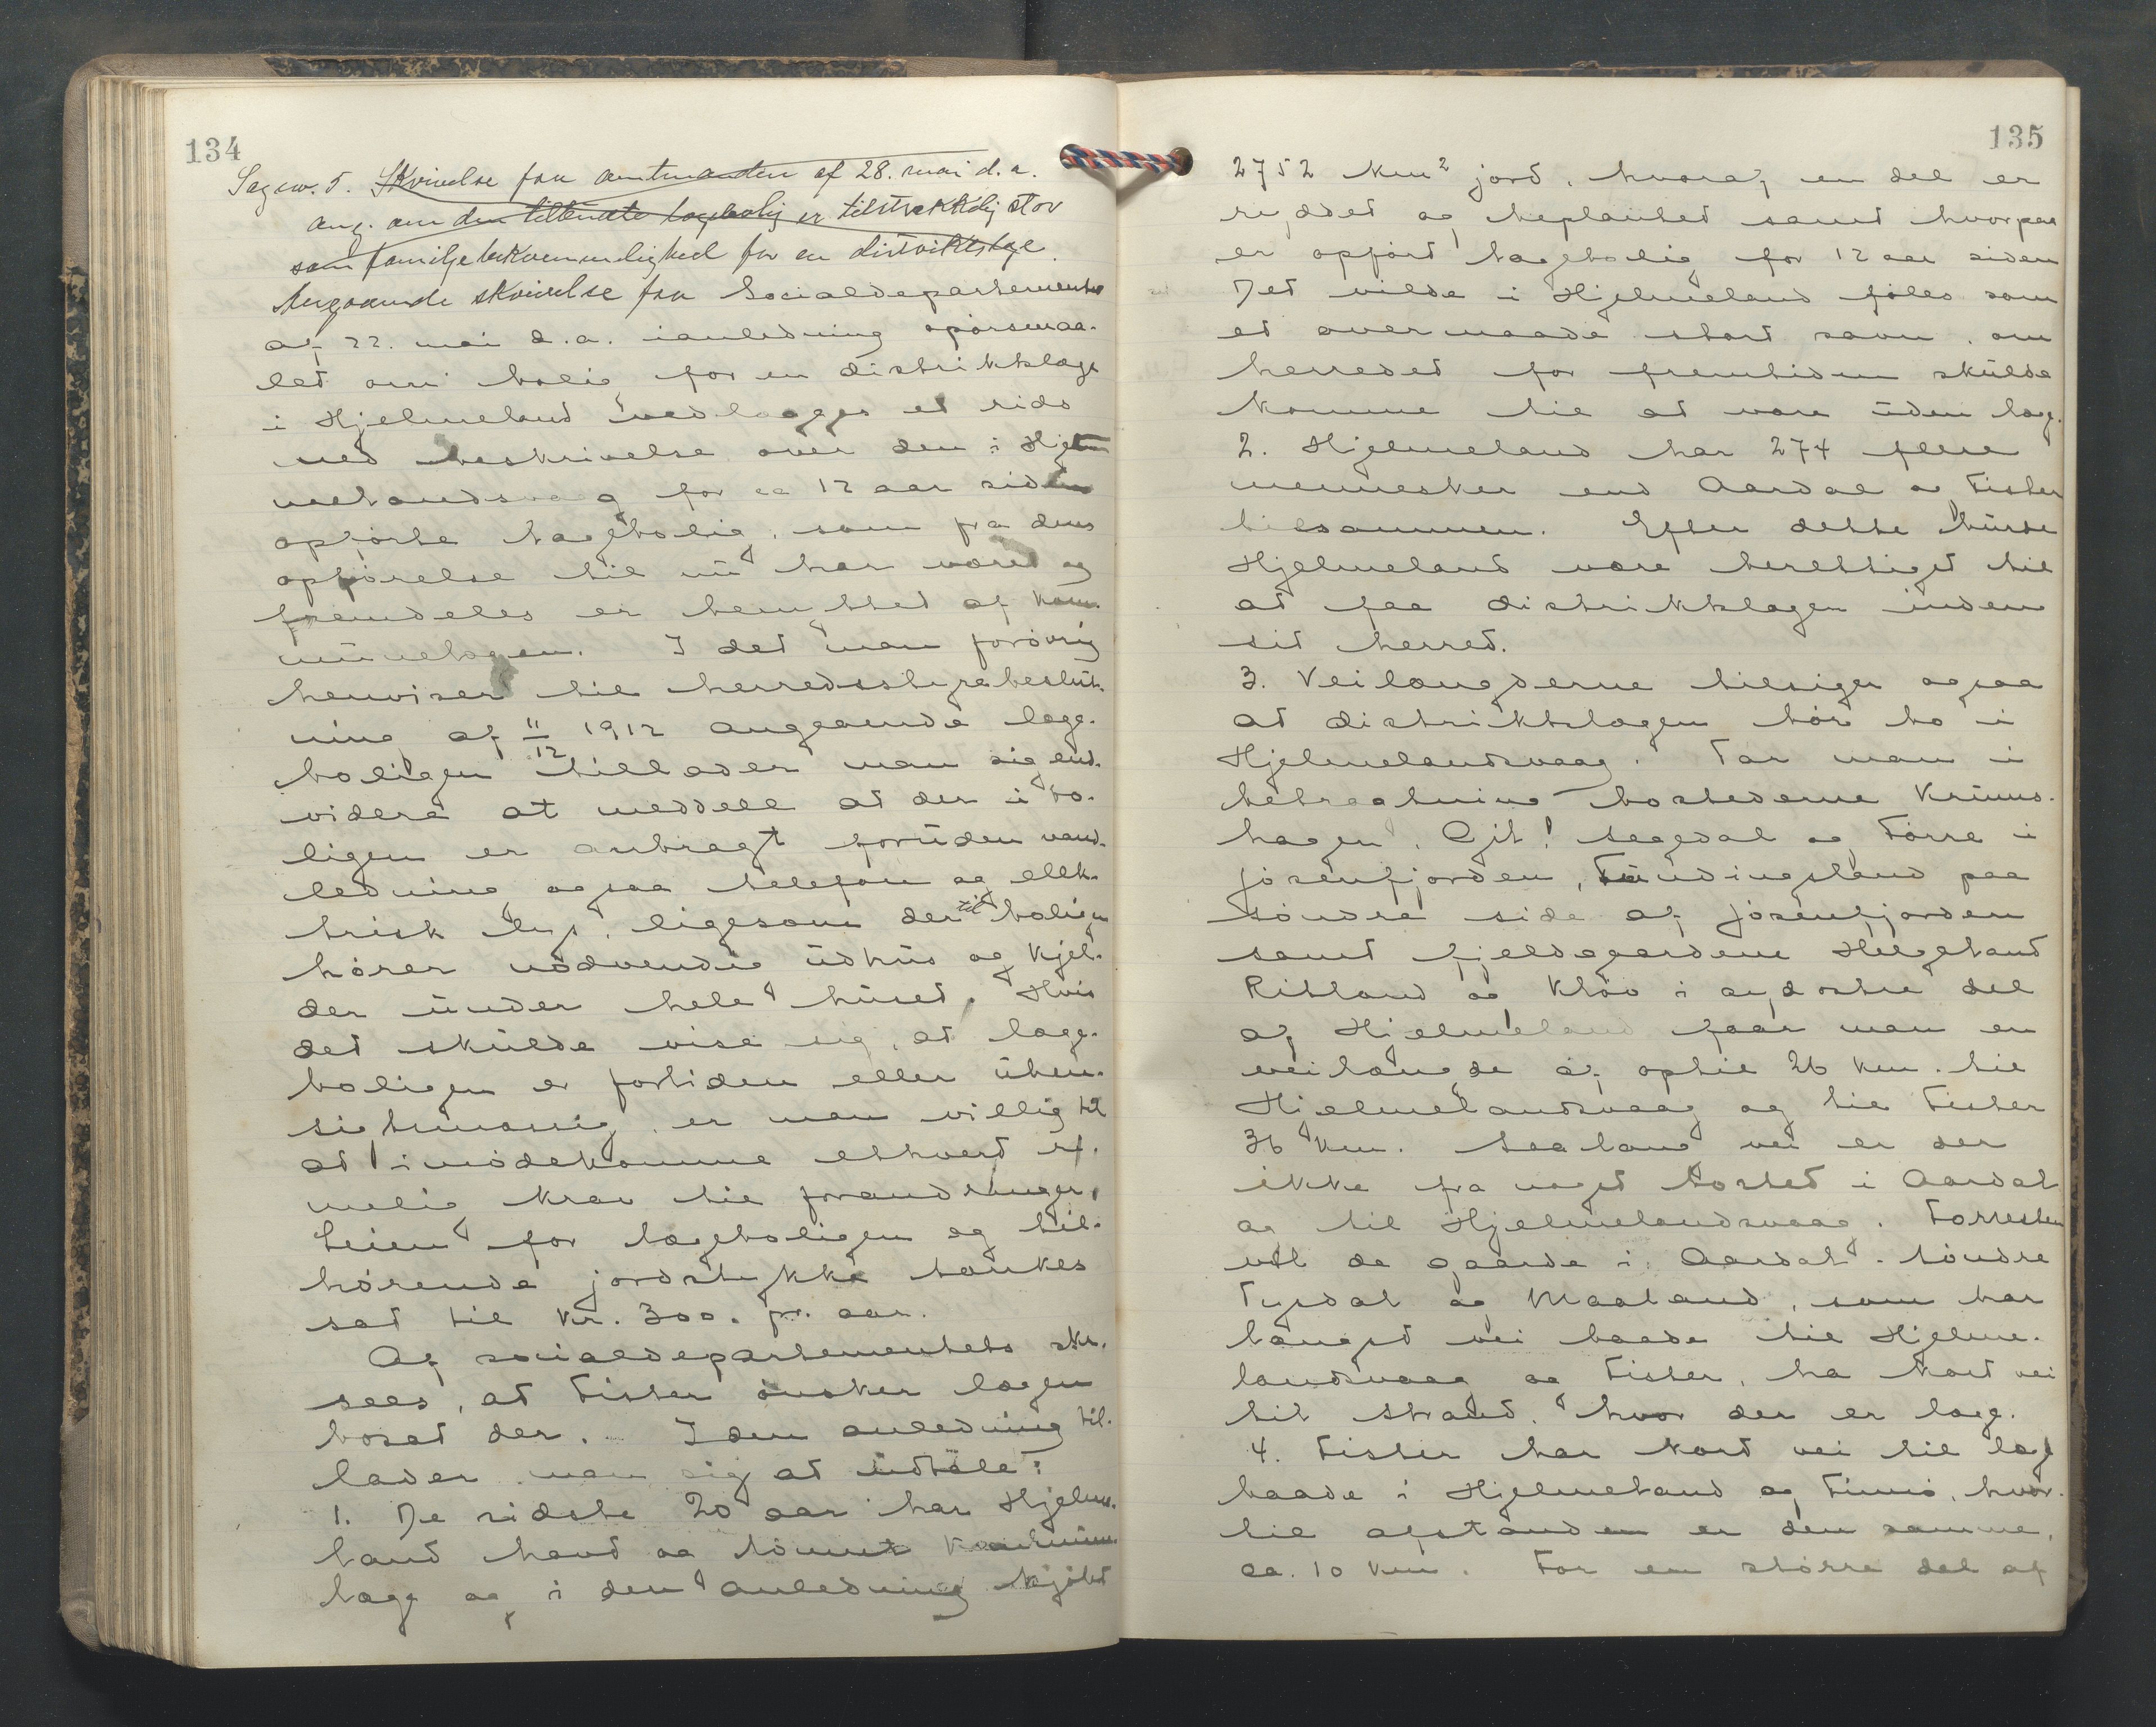 134
Sag nr. 5. Skrivelse fra amtmanden af 28. mai d.a.
ang. om den tilbudte lægebolig er tilstrækkelig stor
som familjebekvemmelighed for en distriktslæge.
Angaaende skrivelse fra Socialdepartementet
af 22. mai d.a. ianledning spørsmaa-
let om bolig for en distriktslæge
i Hjelmeland vedlægges et rids
med beskrivelse over den i Hjel-
melandsvaag for ca 12 aar siden
opførte lægebolig, som fra dens
opførelse til nu har været og
fremdeles er benyttet af kom-
munelægen. I det man forøvrig
henviser til herredsstyrebeslut-
ning af 11/12 1912 angaaende læge-
boligen tillader man sig end-
videre at meddele at der i bo-
ligen er anbragt foruden vand-
ledning ogsaa telefon og elek-
trisk lys, ligesom der til boligen
hører nødvendig udhus og kjel-
der under hele huset. Hvis
det skulde vise sig, at læge-
boligen er forliden eller uhen-
sigtmæssig, er man villig til
at imødekomme ethvert ri-
melig krav til forandringer.
Leien for lægeboligen og til-
hørende jordstykke tænkes
sat til kr. 300. pr. aar.
Af socialdepartementets skr.
sees, at Fister ønsker lægen
bosat der. I den anledning til-
lader man sig at udtale:
1. De sidste 20 aar har Hjelme-
land havd og lønnet kommune-
læge og i den anledning kjøbt
135
2752 km² jord, hvoraf en del er
ryddet og beplantet samt hvorpaa
er opført lægebolig for 12 aar siden
Det vilde i Hjelmeland føles som
et overmaade stort savn, om
herredet for fremtiden skulde
komme til at være uden læge.
2. Hjelmeland har 274 flere
mennesker end Aardal og Fister
tilsammen. Efter dette burde
Hjelmeland være berettiget til
at faa distriktslægen inden
sit herred.
3. Veilængderne tilsiger ogsaa
at distriktslægen bør bo i
Hjelmelandsvaag. Tar man i
betragtning bostederne Krums-
hagen, Gjil, Skegdal og Førre i
Jøsenfjorden, Fundingsland paa
søndre side af Jøsenfjorden
samt fjeldgaardene Helgeland
Ritland og Kløv i sydøstre del
af Hjelmeland faar man en
veilængde af optil 26 km. til
Hjelmelandsvaag og til Fister
36 km. Saa lang vei er der
ikke fra noget bosted i Aardal
og til Hjelmelandsvaag. Forresten
vil de gaarde i Aardal - søndre
Tysdal og Maaland, som har
længst vei baade til Hjelme-
landsvaag og Fister, ha kort vei
til Strand, hvor der er læge.
4. Fister har kort vei til læge
baade i Hjelmeland og Finnø, hvor-
til afstanden er den samme,
ca. 10 km. For en større del af